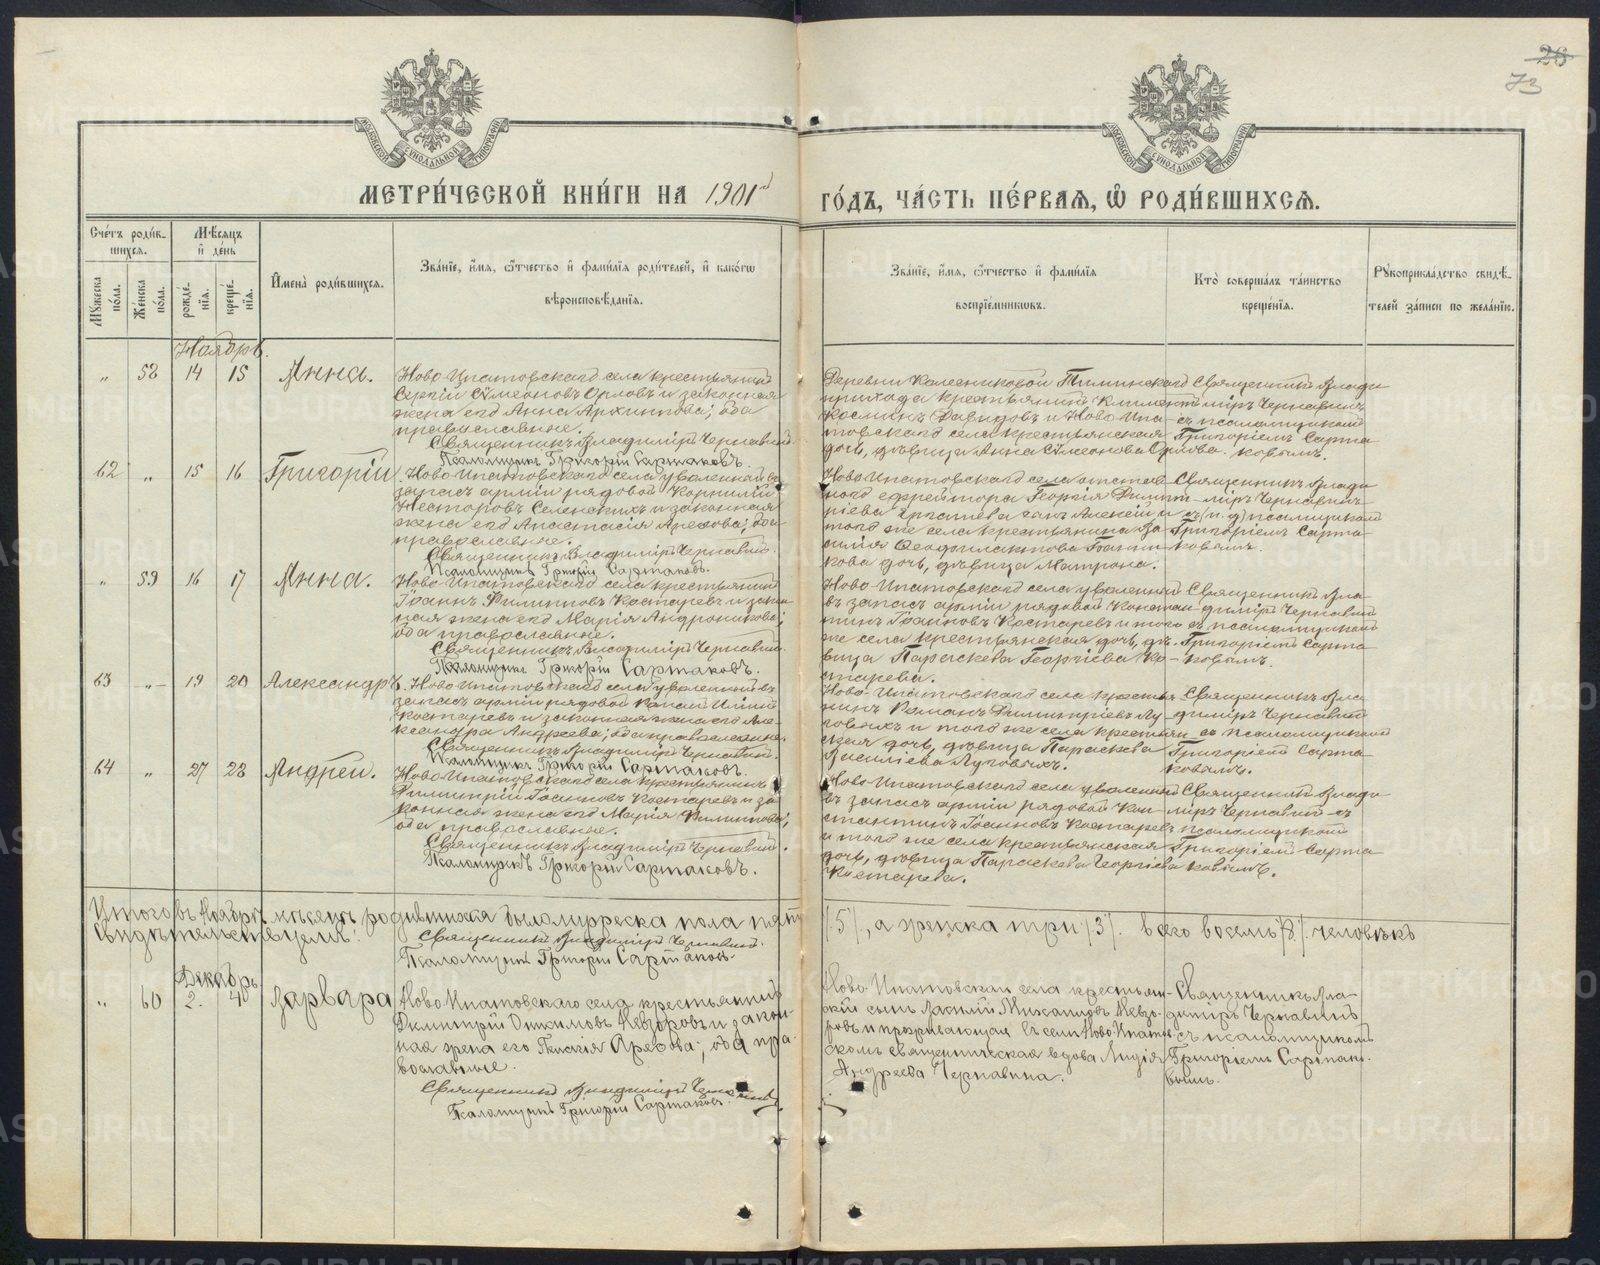 28
73
МОСКОВСКОЙ СѴНОДАЛЬНОЙ ТИПОГРАФІИ
МОСКОВСКОЙ СѴНОДАЛЬНОЙ ТИПОГРАФІИ
МЕТРИ́ЧЕСКОЙ КНИ́ГИ НА 1901й
ГО́ДЪ, ЧА́СТЬ ПЕ́РВАѦ, Ѡ҆ РОДИ́ВШИХСѦ.
Сче́тъ роди́в-
шихсѧ.
Мꙋ́жеска по́ла.
Же́нска по́ла.
Мѣ́сѧцъ
и҆ де́нь
рожде́-нїѧ.
креще́-нїѧ.
И҆мена̀ роди́вшихсѧ.
Зва́нїе, и҆́мѧ, ѻ҆́тчество и҆ фами́лїѧ роди́телей, и҆ како́гѡ
вѣроисповѣ́данїѧ.
Зва́нїе, и҆́мѧ, ѻ҆́тчество и҆ фами́лїѧ
воспрїе́мникѡвъ.
Кто̀ соверша́лъ та́инство
креще́нїѧ.
Рꙋкоприкла́дство свидѣ́-
телей за́писи по жела́нїю.
Ноябрь.
„ 58 14 15 Анна.
Ново-Ипатовскаго села крестьянинъ
Сергій Сѵмеоновъ Орловъ и законная
жена его Анна Архиппова; оба
православные.
Священникъ Владиміръ Чернавинъ.
Псаломщикъ Григорій Сартаковъ.
Деревни Колесниковой Тиминскаго
прихода крестьянинъ Климентъ
Косминъ Давидовъ и Ново-Ипа-
товскаго села крестьянская
дочь, дѣвица Анна Сѵмеонова Орлова.
Священникъ Влади
міръ Чернавинъ
съ псаломщикомъ
Григоріемъ Сарта
ковымъ.
62 „ 15 16 Григорій
Ново-Ипатовскаго села уволенный въ
запасъ арміи рядовой Корнилій
Несторовъ Селенскихъ и законная
жена его Анастасія Арефова; оба
православные.
Священникъ Владиміръ Чернавинъ.
Псаломщикъ Григорій Сартаковъ.
Ново-Ипатовскаго села отстав-
ного ефрейтора Георгія Димит-
ріева сынъ Алексій и
того же села крестьянина Ва-
силія Ѳеофилактова
кова дочь, дѣвица Матрона.
Священникъ Влади
міръ Чернавинъ
съ (и. д) псаломщикомъ
Григоріемъ Сарта-
ковымъ.
„ 59 16 17 Анна.
Ново-Ипатовскаго села крестьянинъ
Іоаннъ Филипповъ Костаревъ и закон
ная жена его Марія Андроникова;
оба православные.
Священникъ Владиміръ Чернавинъ.
Псаломщикъ Григорій Сартаковъ.
Ново-Ипатовскаго села уволенный
въ запасъ арміи рядовой Констан-
тинъ Іоанновъ Костаревъ и того
же села крестьянская дочь, дѣ-
вица Параскева Георгіева Ко-
старева.
Священникъ Вла-
диміръ Чернавинъ
съ псаломщикомъ
Григоріемъ Сарта
ковымъ.
63 „ 19 20 Александръ.
Ново-Ипатовскаго села уволенный въ
запасъ арміи рядовой
Костаревъ и законная жена его Але-
ксандра Андреева; оба православные.
Священникъ Владиміръ Чернавинъ.
Псаломщикъ Григорій Сартаковъ.
Ново-Ипатовскаго села крестья
нинъ Романъ Димитріевъ Лу-
говыхъ и того же села крестьян
ская дочь, дѣвица Параскева
Василіева Луговыхъ.
Священникъ Вла
диміръ Чернавинъ
съ псаломщикомъ
Григоріемъ Сарта
ковымъ.
64 „ 27 28 Андрей.
Ново-Ипатовскаго села крестьянинъ
Димитрій Іоанновъ Костаревъ и за
конная жена его Марія Филиппова;
оба православные.
Священникъ Владиміръ Чернавинъ.
Псаломщикъ Григорій Сартаковъ.
Ново-Ипатовскаго села уволенный
въ запасъ арміи рядовой Кон-
стантинъ Іоанновъ Костаревъ
и того же села крестьянская
дочь, дѣвица Параскева Георгіева
Костарева.
Священникъ Влади
міръ Чернавинъ съ
псаломщикомъ
Григоріемъ Сарта
ковымъ.
Итого въ Ноябрѣ мѣсяцѣ родившихся было мужеска пола пять /5/, а женска три /3/. всего восемь /8/ человѣкъ
Свидѣтельствуемъ:
Священникъ Владиміръ Чернавинъ.
Псаломщикъ Григорій Сартаковъ.
Декабрь
„ 60 2. Варвара
Ново-Ипатовскаго села крестьянинъ
Димитрій Невзоровъ и закон-
ная жена его Арефова; оба пра-
вославные.
Священникъ Владиміръ Чернавинъ
Псаломщикъ Григорій Сартаковъ.
Ново-Ипатовскаго села крестьян-
скій сынъ Василій Михаиловъ Невзо-
ровъ и проживающая въ селѣ Ново-Ипатов
скомъ священническая вдова Лидія
Андреева Чернавина.
Священникъ Вла-
диміръ Чернавинъ
съ псаломщикомъ
Григоріемъ Сартако-
вымъ.
METRIKI.GASO-URAL.RU